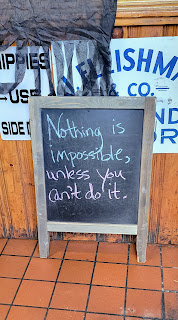 HIPPIES
USE
SIDE D
FLEISHM
& CO.
ND
OR
Nothing is
impossible,
unless you
can't do it.